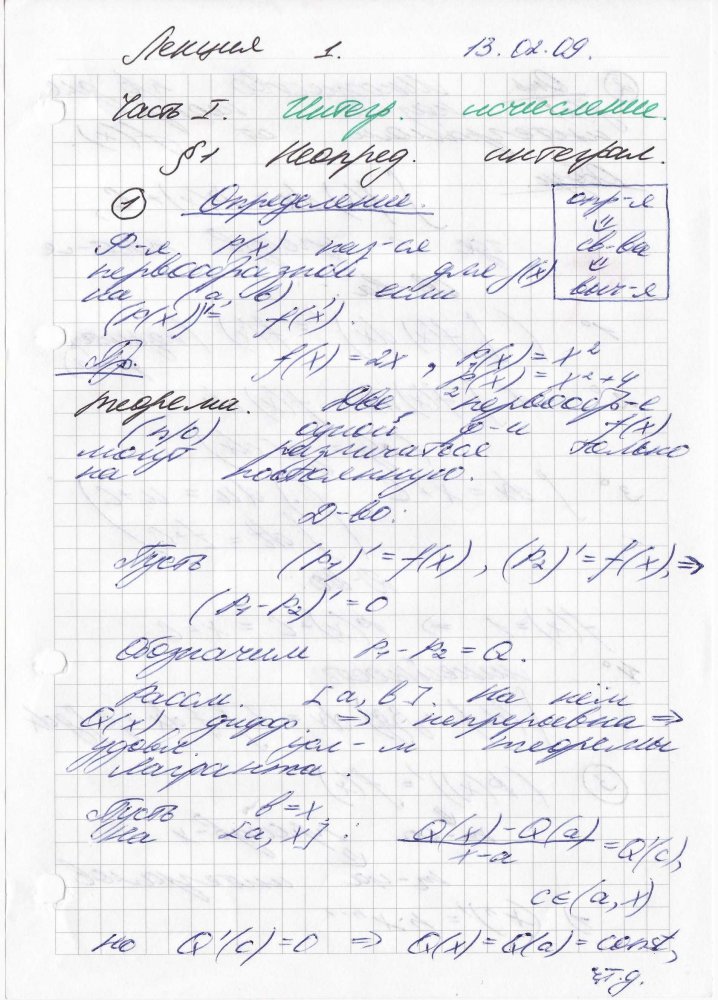 Лекция 1. 13.02.09.
Часть I. Интегр. исчисление.
§1 Неопред. интеграл.
① Определение.
опр-я
⇓
св-ва
⇓
выч-я
Ф-я P(x) наз-ся
первообразной для f(x)
на (a, b), если
(P(x))' = f(x).
Пр. f(x) = 2x, P₁(x) = x²
P₂(x) = x² + 4
Теорема. Две первообр-е
(п/о) одной ф-и f(x)
могут различаться только
на постоянную.
Д-во:
Пусть (P₁)' = f(x), (P₂)' = f(x), ⇒
(P₁ - P₂)' = 0
Обозначим P₁ - P₂ = Q.
Рассм. [a, b]. На нём
Q(x) дифф. ⇒ непрерывна ⇒
удовл. усл-м теоремы
Лагранжа.
Пусть b = x,
на [a, x]: (Q(x) - Q(a))/(x - a) = Q'(c),
c ∈ (a, x)
но Q'(c) = 0 ⇒ Q(x) = Q(a) = const,
чт.д.